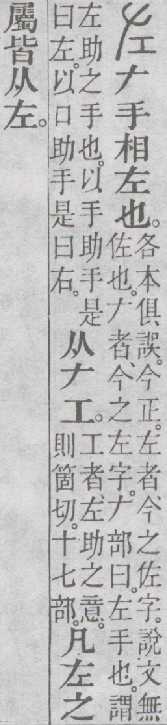 左𠂇手相左也。
各本俱誤。今正。左者今之佐字。說文無
佐也。𠂇者、今之左字。𠂇部曰。左手也。謂
左助之手也。以手助手是
曰左。以口助手是曰右。
从𠂇工。
工者、左助之意。
則箇切。十七部。
凡左之
屬皆从左。